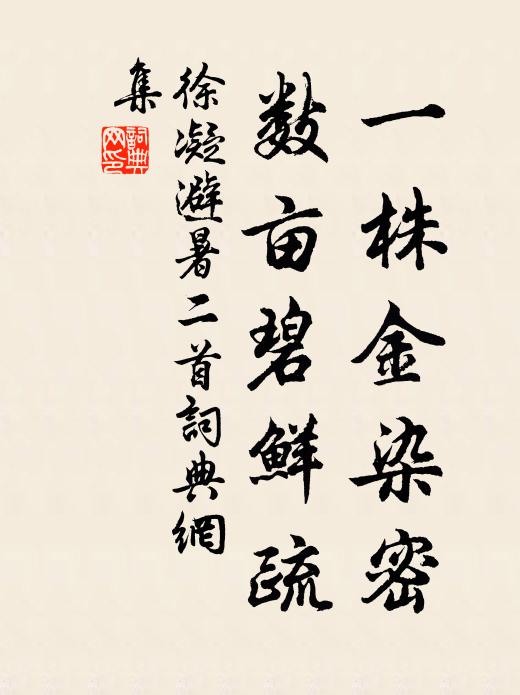 一株金染密
数亩碧鮮疏
徐凝避暑二首詞典網
集
詞典
网印